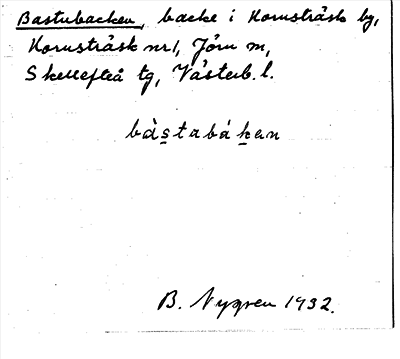 Bastubacken, backe i Kornsträsk by,
Kornsträsk nr 1, Jörn m,
Skellefteå tg, Västerb. l.
bàstabákan
B. Nygren 1932.